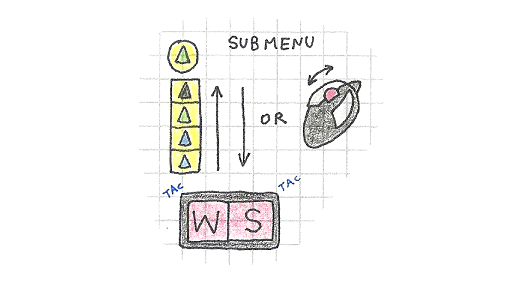 SUBMENU
OR
TAC TAC
W S